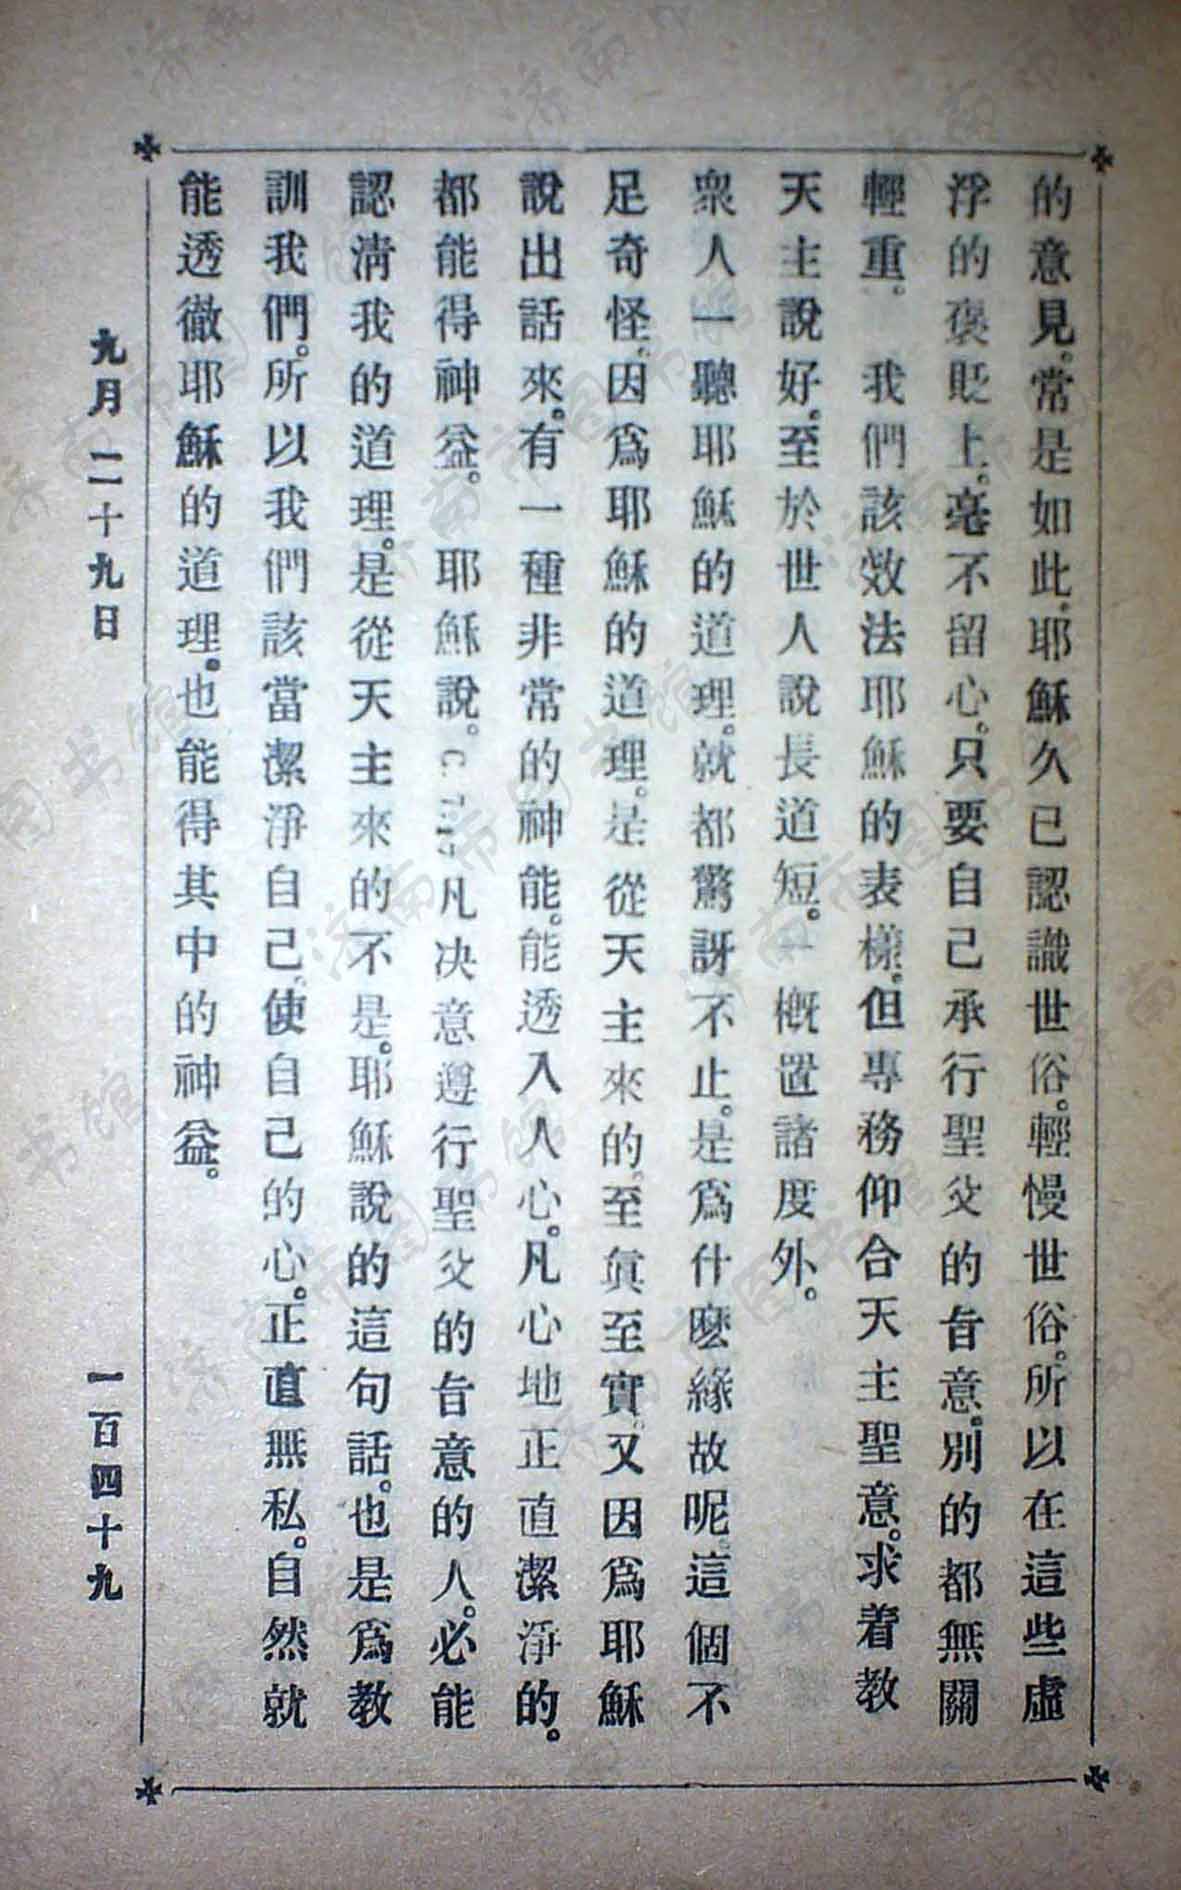 的意見。常是如此。耶穌久已認識世俗。輕慢世俗。所以在這些虛
浮的褒貶上。毫不留心。只要自己承行聖父的旨意。別的都無關
輕重。 我們該效法耶穌的表樣。但專務仰合天主聖意。求着教
天主說好。至於世人說長道短。一概置諸度外。
衆人一聽耶穌的道理。就都驚訝不止。是爲什麽緣故呢。這個不
足奇怪。因爲耶穌的道理。是從天主來的。至眞至實。又因爲耶穌
說出話來。有一種非常的神能。能透入人心。凡心地正直潔淨的。
都能得神益。 耶穌說。凡决意遵行聖父的旨意的人。必能
認淸我的道理。是從天主來的不是。耶穌說的這句話。也是爲教
訓我們。所以我們該當潔淨自己。使自己的心。正直無私。自然就
能透徹耶穌的道理。也能得其中的神益。
九月二十九日
一百四十九
济南市图书馆